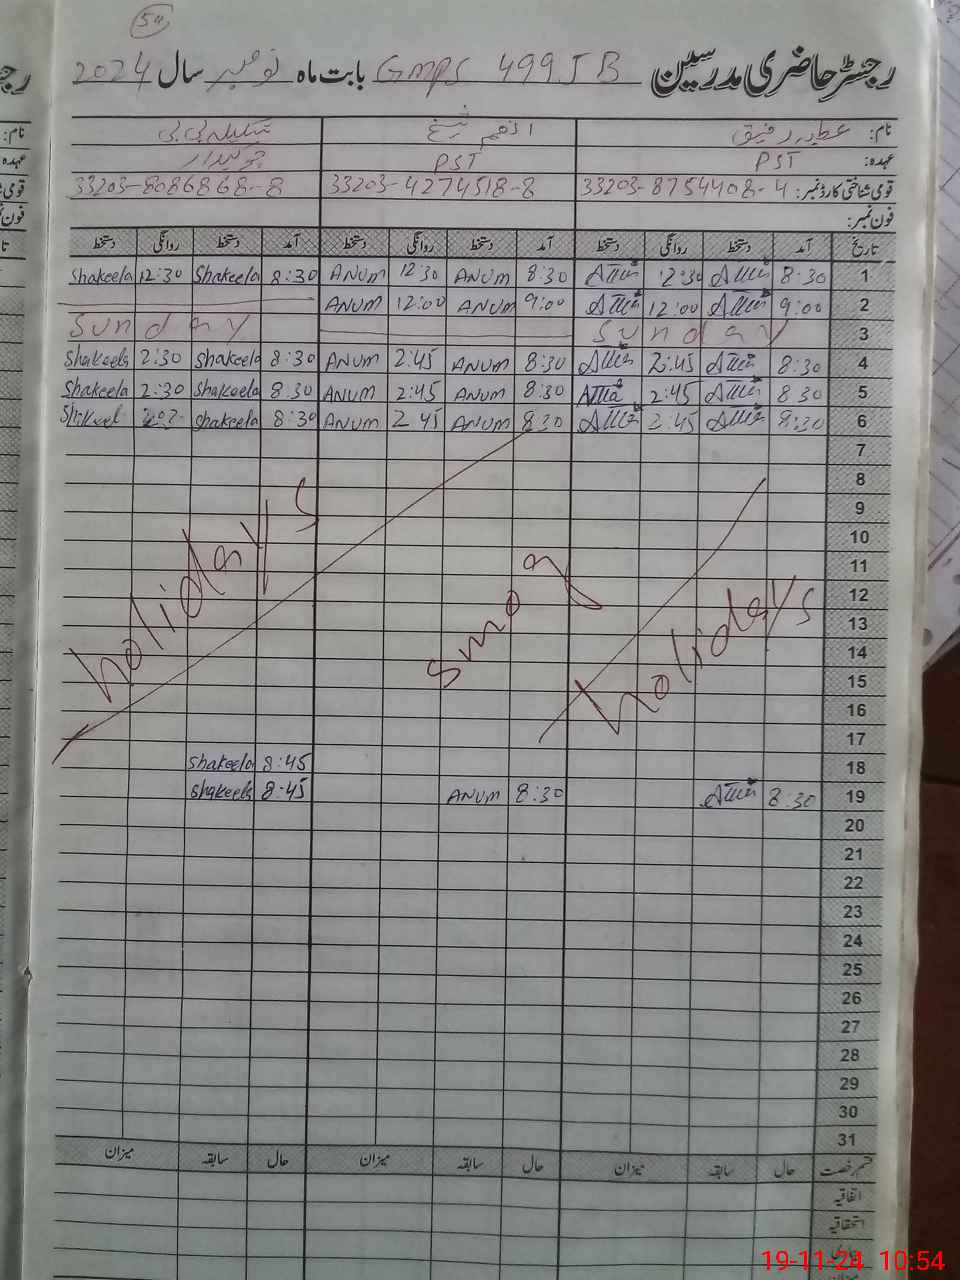 50
رجسٹر حاضری مدرسین GMPS 499 JB بابت ماہ نومبر سال 2024
نام: عطیہ رفیق انعم شیخ شکیلہ بی بی
عہدہ: PST PST چوکیدار
قومی شناختی کارڈ نمبر: 33203-8754408-4 33203-4274518-8 33203-8086868-8
فون نمبر:
تاریخ آمد دستخط روانگی دستخط آمد دستخط روانگی دستخط آمد دستخط روانگی دستخط
1 8:30 12:30 8:30 ANUM 12:30 ANUM 8:30 Shakeela 12:30 Shakeela
2 9:00 12:00 9:00 ANUM 12:00 ANUM
3 Sunday Sunday
4 8:30 2:45 8:30 ANUM 2:45 ANUM 8:30 Shakeela 2:30 Shakeela
5 8 30 2:45 8:30 ANUM 2:45 ANUM 8 30 Shakeela 2:30 Shakeela
6 8:30 2:45 8 30 ANUM 2 45 ANUM 8:30 Shakeela
7
8
9
10
11
12
13
14
15
16
17
holidays smog holidays
18 8:45 Shakeela
19 8:30 8:30 ANUM 8:45 Shakeela
20
21
22
23
24
25
26
27
28
29
30
31
قسم رخصت حال سابقہ میزان حال سابقہ میزان حال سابقہ میزان
اتفاقیہ
استحقاقیہ
19-11-24 10:54